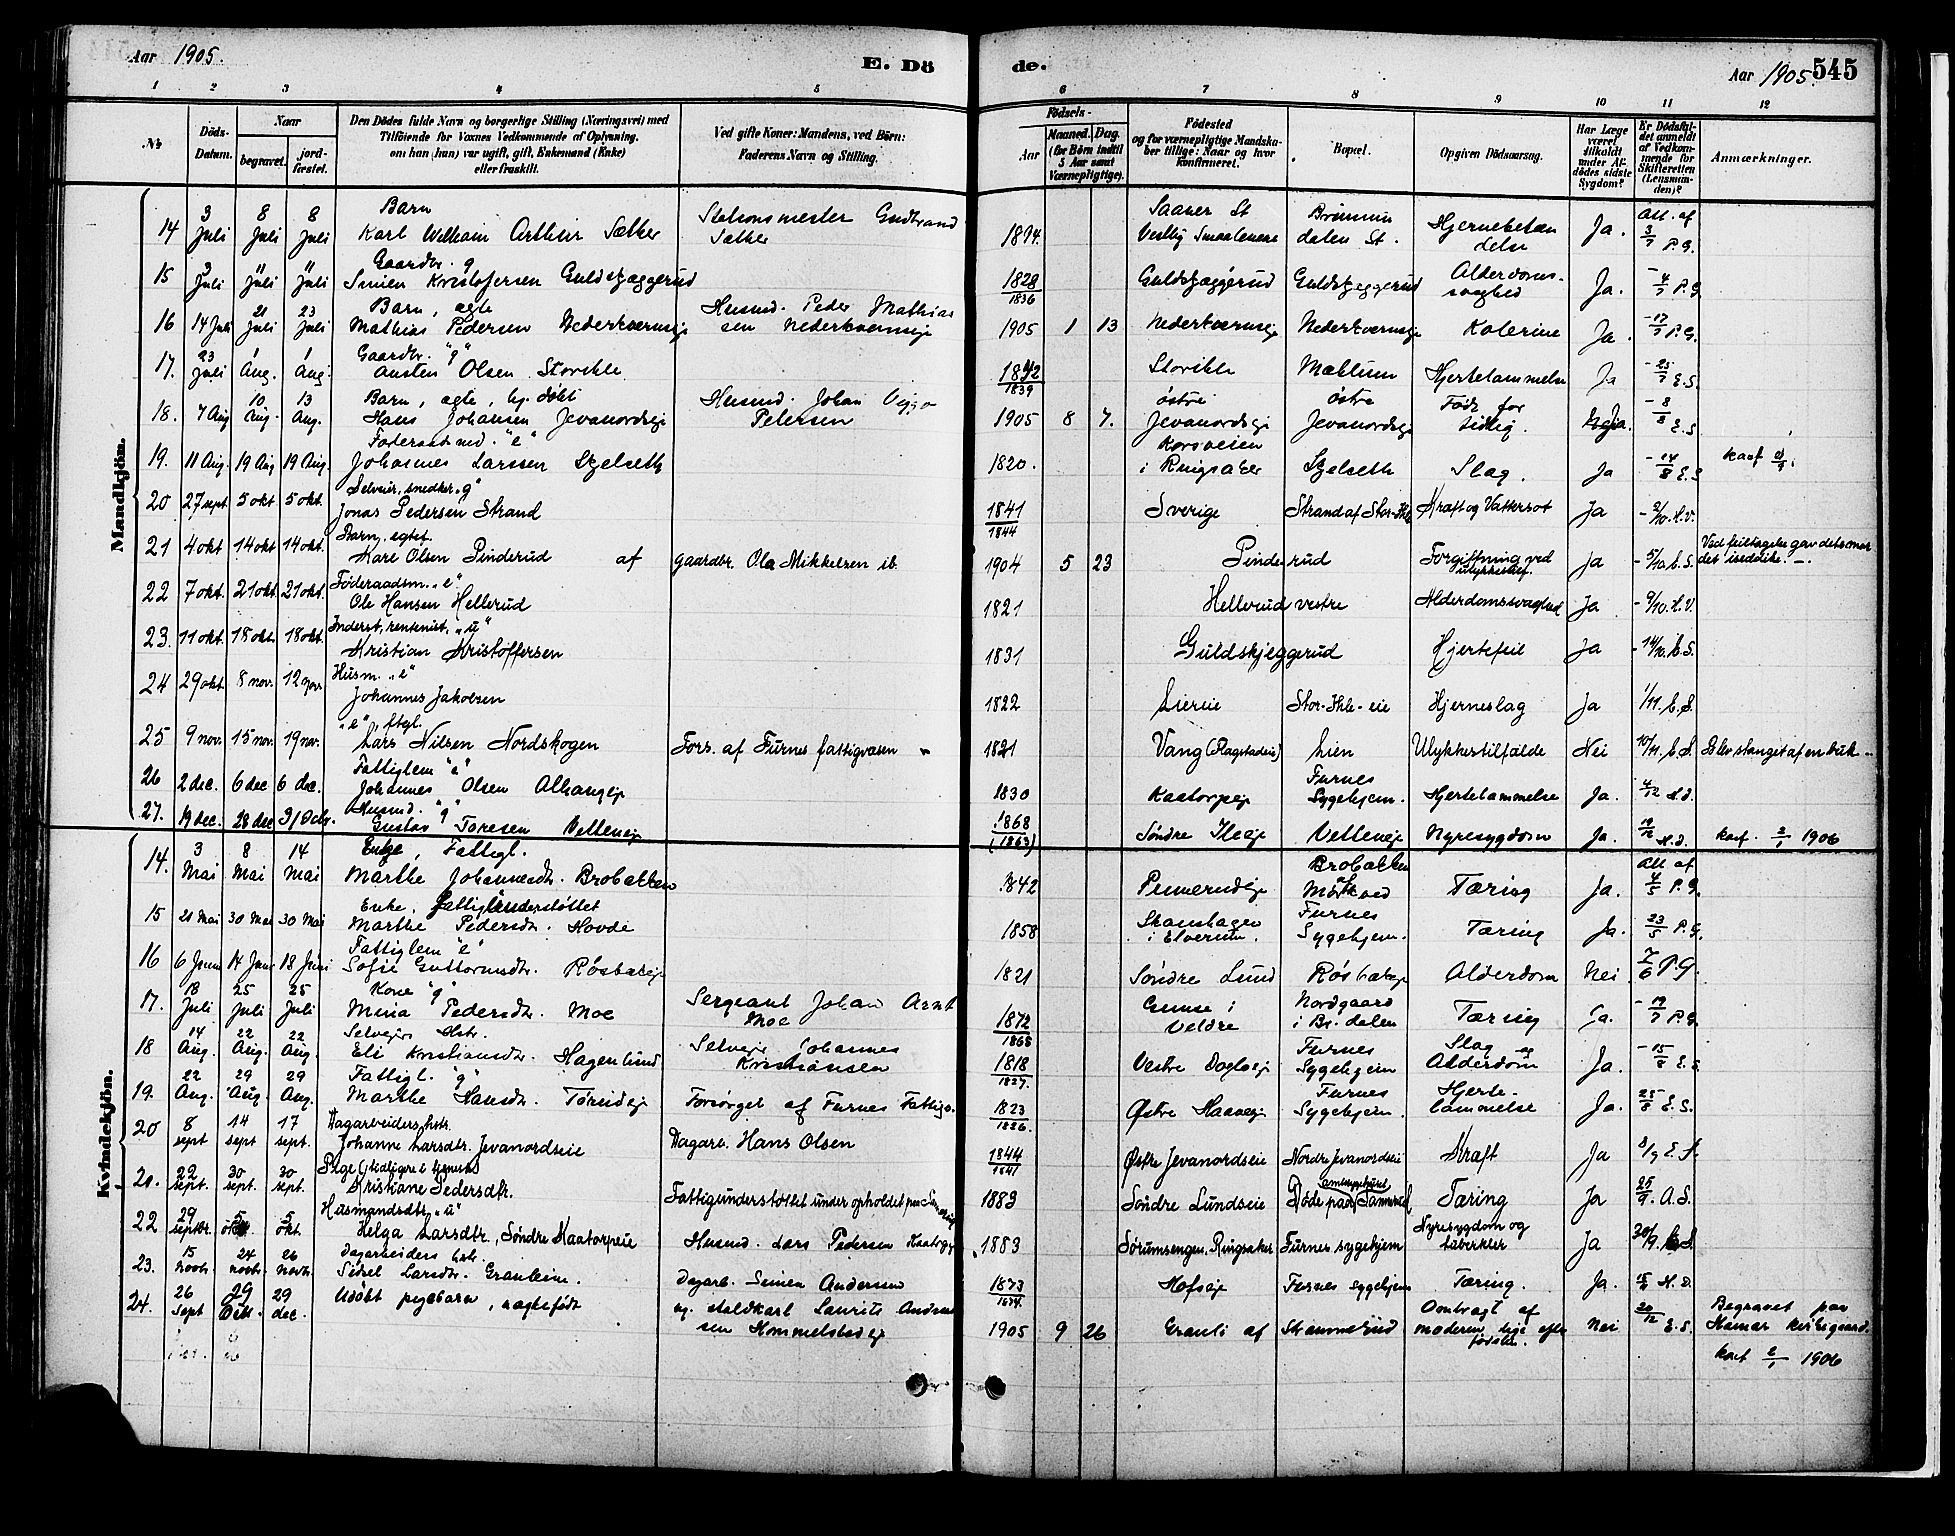 Aar 1905.
E. Dö
de.
Aar 1905. 545
1 2 3 4 5 6 7 8 9 10 11 12
№
Döds-Datum.
Naar
begravet.
jord-fæstet.
Den Dödes fulde Navn og borgerlige Stilling (Næringsvei) med
Tilföiende for Voxnes Vedkommende af Oplysning,
om han (hun) var ugift, gift, Enkemand (Enke)
eller fraskilt.
Ved gifte Koner: Mandens, ved Börn:
Faderens Navn og Stilling.
Födsels-
Aar
Maaned. Dag.
(for Börn indtil 5 Aar samt Værnepligtige).
Födested
og for værnepligtige Mandska-
ber tillige: Naar og hvor
konfirmeret.
Bopæl.
Opgiven Dödsaarsag.
Har Læge været tilkaldt under Af-dödes sidste Sygdom?
Er Dödsfal-det anmeldt af Vedkom-mende for Skifteretten (Lensman-den)?
Anmærkninger.
Mandkjön.
14 3 Juli 8 Juli 8 Juli Barn Karl Wilhelm Arthur Sæther Stationsmester Gudbrand Sæther 1894. Saaner St Vestby Smaalenene Brumun dalen St. Hjernebetæn delse Ja. Att. af 3/7 P.G.
15 3 Juli 11 Juli 11 Juli Gaardbr. g Simen Kristofersen Guldskjæggerud 1828 1836 Guldskjæggerud Guldskjeggerud Alderdoms-svaghed Ja. - 4/7 P.G
16 14 Juli 21 Juli 23 Juli Barn, ægte Mathias Pedersen Nederkværnseje Husmd. Peder Mathiassen Nederkværnseje 1905 1 13 Nederkværnseje Nederkværnseje Kolerine Ja. - 17/7 P.G.
17. 23 Juli 1 Aug. 1 Aug. Gaardbr. "g" Austen Olsen Storihle 1842 1839 Storihle Mælum Hjertelammelse Ja - 25/7 E.S.
18. 7 Aug 10 Aug. 13 Aug. Barn, ægte, hj. døbt Hans Johansen Jevanordseje Husmd. Johan Viggo Petersen 1905 8 7. østre Jevanordseje østre Jevanordseje Født for tidlig. Ja. - 8/8 E.S
19. 11 Aug. 19 Aug 19 Aug. Føderaadsmd. "e" Johannes Larssen Skjelseth 1820. Korsveien i Ringsaker Skjelseth Slag. Ja - 14/8 E.S
20 27 sept. 5 okt 5 okt. Selveier, snedker "g" Jonas Pedersen Strand 1841 1844 Sverige Strand af Stor-Ihle Kræft og Vattersot Ja - 2/10. H.V.
21 4 okt 14 okt 14 okt. Barn, egtef. Karl Olsen Pinderud af gaardbr. Ola Mikkelsen ib. 1904 5 23 Pinderud Forgiftning ved ulykkestilf. Ja - 5/10 E.S. Ved feiltagelse gav det somor det iseddike. -.
22 7 okt. 21 okt. 21 okt. Føderaadsm. "e" Ole Hansen Hellerud 1821 Hellerud vestre Alderdomssvaghed Ja - 9/10. H.V.
23. 11 okt. 18 okt. 18 okt. Inderst, rentenist, "u" Kristian Kristoffersen 1831 Guldskjeggerud Hjertefeil Ja - 14/10. E.S.
24 29 okt. 8 nov. 12 nov. Husm. "e" Johannes Jakobsen 1822 Liereie Stor-Ihle-eie Hjerneslag Ja 1/11. E.S.
25 9 nov. 15 nov. 19 nov. "e", ftgl. Lars Nilsen Nordskogen Fors. af Furnes fattigvæsen 1821 Vang Lien Ulykkestilfælde Nei 10/11. E.S. Blev stanget af en buk -
26 2 dec. 6 dec 6 dec. Fattiglem "e" Johannes Olsen Alhaugeje 1830 Kaatorpeje Furnes Sygehjem. Hjertelammelse Ja. 4/12 H.D.
27. 19 dec. 28 dec 31 Dcbr. Husmd. "g" Gustav Toresen Velteneje 1868 (1863) Søndre Ileeje Velteneje Nyresygdom Ja. 19/12 H.D. kast. 2/1 1906
Kvindekjön.
14. 3 Mai 8 Mai 14 Mai Enke, Fattigl. Marthe Johannesdtr. Brobakken 1842 Brobakken Mørkved Tæring Ja. Att af 4/5 P.G.
15 21 Mai 30 Mai 30 Mai Enke, fattigunderstøttet Marthe Pedersdtr. Hovde 1858 Skaushagen i Elverum. Furnes Sygehjem. Tæring Ja. 23/5 P.G.
16 6 Juni 14 Juni 18 Juni Fattiglem "e" Sofie Guttormsdtr. Røsbakeje 1821 Søndre Lund Røsbakeje Alderdom Nei 7/6 P.G
17. 18 Juli 25 Juli 25 Juli Kone "g" Mina Pedersdtr. Moe Sergeant Johan Arnt Moe 1872 1868 i Veldre Nordgaard i Br.dalen Tæring Ja. - 19/7 P.G.
18 14 Aug. 22 Aug. 22 Aug. Selvejers Hstr. Eli Kristiansdtr. Hagenlund Selvejer Johannes Kristiansen 1818 1827. Vestre Furnes Sygehjem Slag og Alderdom Ja. - 15/8 E.S
19. 22 Aug. 29 Aug. 29 Aug. Fattigl. "g" Marthe Hansdtr. Torudeje Forsørget af Furnes Fattigv. 1823 1826. Østre Haaveeje Furnes Sygehjem. Hjerte-lammelse Ja. 25/8 E.S.
20 8 sept 14 sept 17 sept. Dagarbeiders hstr. Johanne Larsdtr. Jevanordseie Dagarb. Hans Olsen 1844 1841 Østre Jevanordseie Nordre Jevanordseie Kræft Ja 8/9 E.S.
21. 22 sept. 30 sept. 30 sept. Pige (tidligere i tjeneste) Kristiane Pedersdtr. Fattigunderstøttet under opholdet paa 1883 Søndre Lundseie Døde paa Sanmd. Tæring Ja 25/9. A.S.
22 29 septbr. 5 okt. 5 okt. Husmandsdtr. "u" Helga Larsdtr., Søndre Kaatorpeie Husmd. Lars Pedersen Kaatorpeje 1883 Sørumsengen, Ringsaker Furnes sygehjem Nyresygdom og tuberkler Ja 30/9. E.S.
23. 15 novb. 24 novb. 26 novb. Dagarbeiders hstr. Sidsel Larsdtr. Granheim. Dagarb. Simen Andersen 1873 1874. Hofseje Furnes sygehjem Tæring. Ja. H.D.
24. 26 sept 29 dec. Udøbt pigebarn, uægtefødt og. staldkarl Laurits Andersen Hommelstadeje 1905 9 26 Granli af Stammerud Ombragt af moderen lige efter fødslen. Nei 20/12 E.S. Begravet paa Hamar kirkegaard. kast 2/1 1906